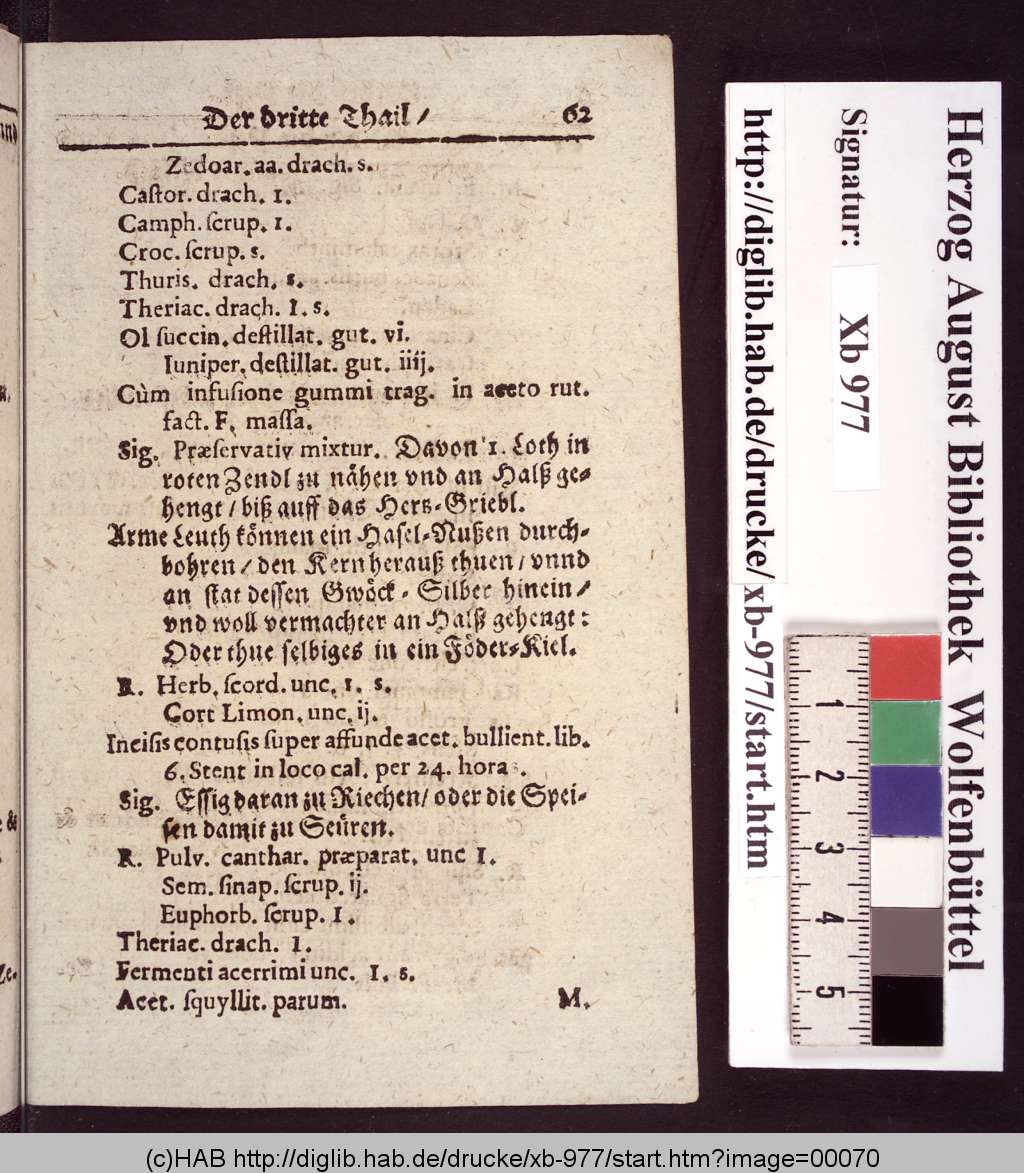 Der dritte Thail /
62
Zedoar. aa. drach. s.
Caſtor. drach. 1.
Camph. ſcrup. 1.
Croc. ſcrup. s.
Thuris. drach. s.
Theriac. drach. 1. s.
Ol ſuccin. deſtillat. gut. vi.
Iuniper. deſtillat. gut. iiij.
Cùm infuſione gummi trag. in aceto rut.
fact. F. maſſa.
Sig. Præſervativ mixtur. Davon 1. Loth in
roten Zendl zu nähen vnd an Halß ge⸗
hengt / biß auff das Hertz⸗Griebl.
Arme Leuth können ein Haſel⸗Nußen durch⸗
bohren / den Kern herauß thuen / vnnd
an ſtat deſſen Gwöck⸗Silber hinein /
vnd woll vermachter an Halß gehengt:
Oder thue ſelbiges in ein Föder⸗Kiel.
R. Herb. ſcord. unc. 1. s.
Cort Limon. unc. ij.
Inciſis contuſis ſuper affunde acet. bullient. lib.
6. Stent in loco cal. per 24. hora.
Sig. Eſſig daran zu Riechen / oder die Spei⸗
ſen damit zu Seüren.
R. Pulv. canthar. præparat. unc 1.
Sem. ſinap. ſcrup. ij.
Euphorb. ſcrup. 1.
Theriac. drach. 1.
Fermenti acerrimi unc. 1. s.
Acet. ſquyllit. parum.
M.
Herzog August Bibliothek Wolfenbüttel
Signatur: Xb 977
http://diglib.hab.de/drucke/ xb-977/start.htm
1
2
3
4
5
(c)HAB http://diglib.hab.de/drucke/xb-977/start.htm?image=00070